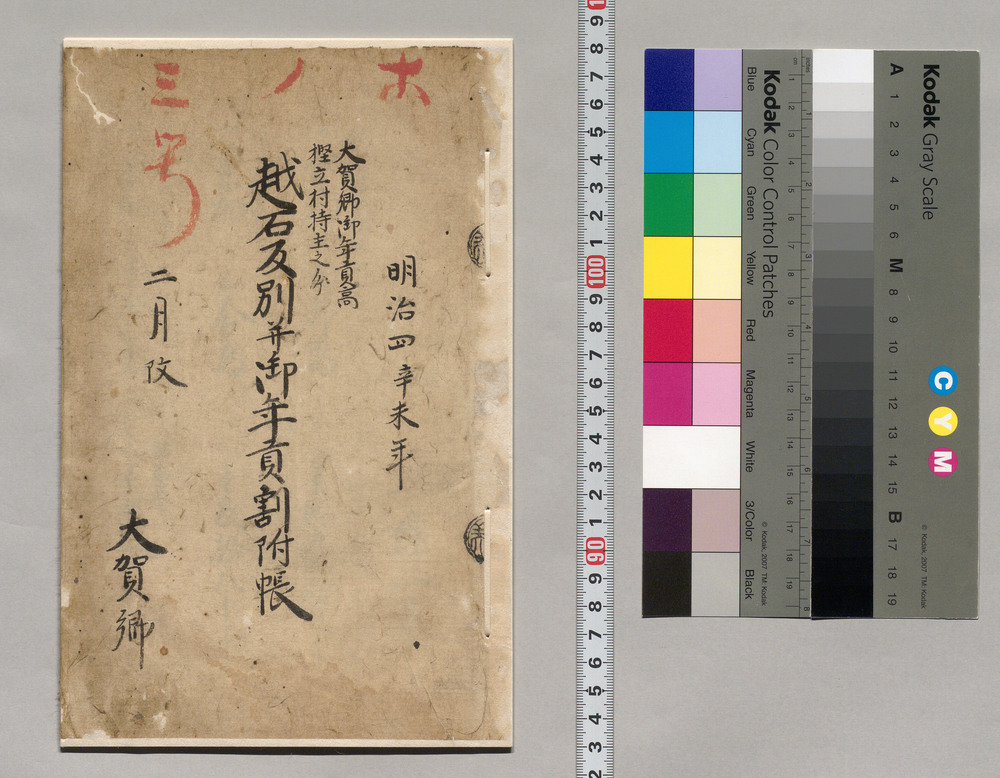 ホノ三号
明治四辛未年
大賀郷御年貢高
樫立村持主之分
越石反別并御年貢割附帳
二月改
大賀郷
Kodak Color Control Patches
Blue
Cyan
Green
Yellow
Red
Magenta
White
3/Color
Black
© Kodak, 2007 TM: Kodak
Kodak Gray Scale
A 1 2 3 4 5 6 M 8 9 10 11 12 13 14 15 B 17 18 19
C Y M
© Kodak, 2007 TM: Kodak
100
90